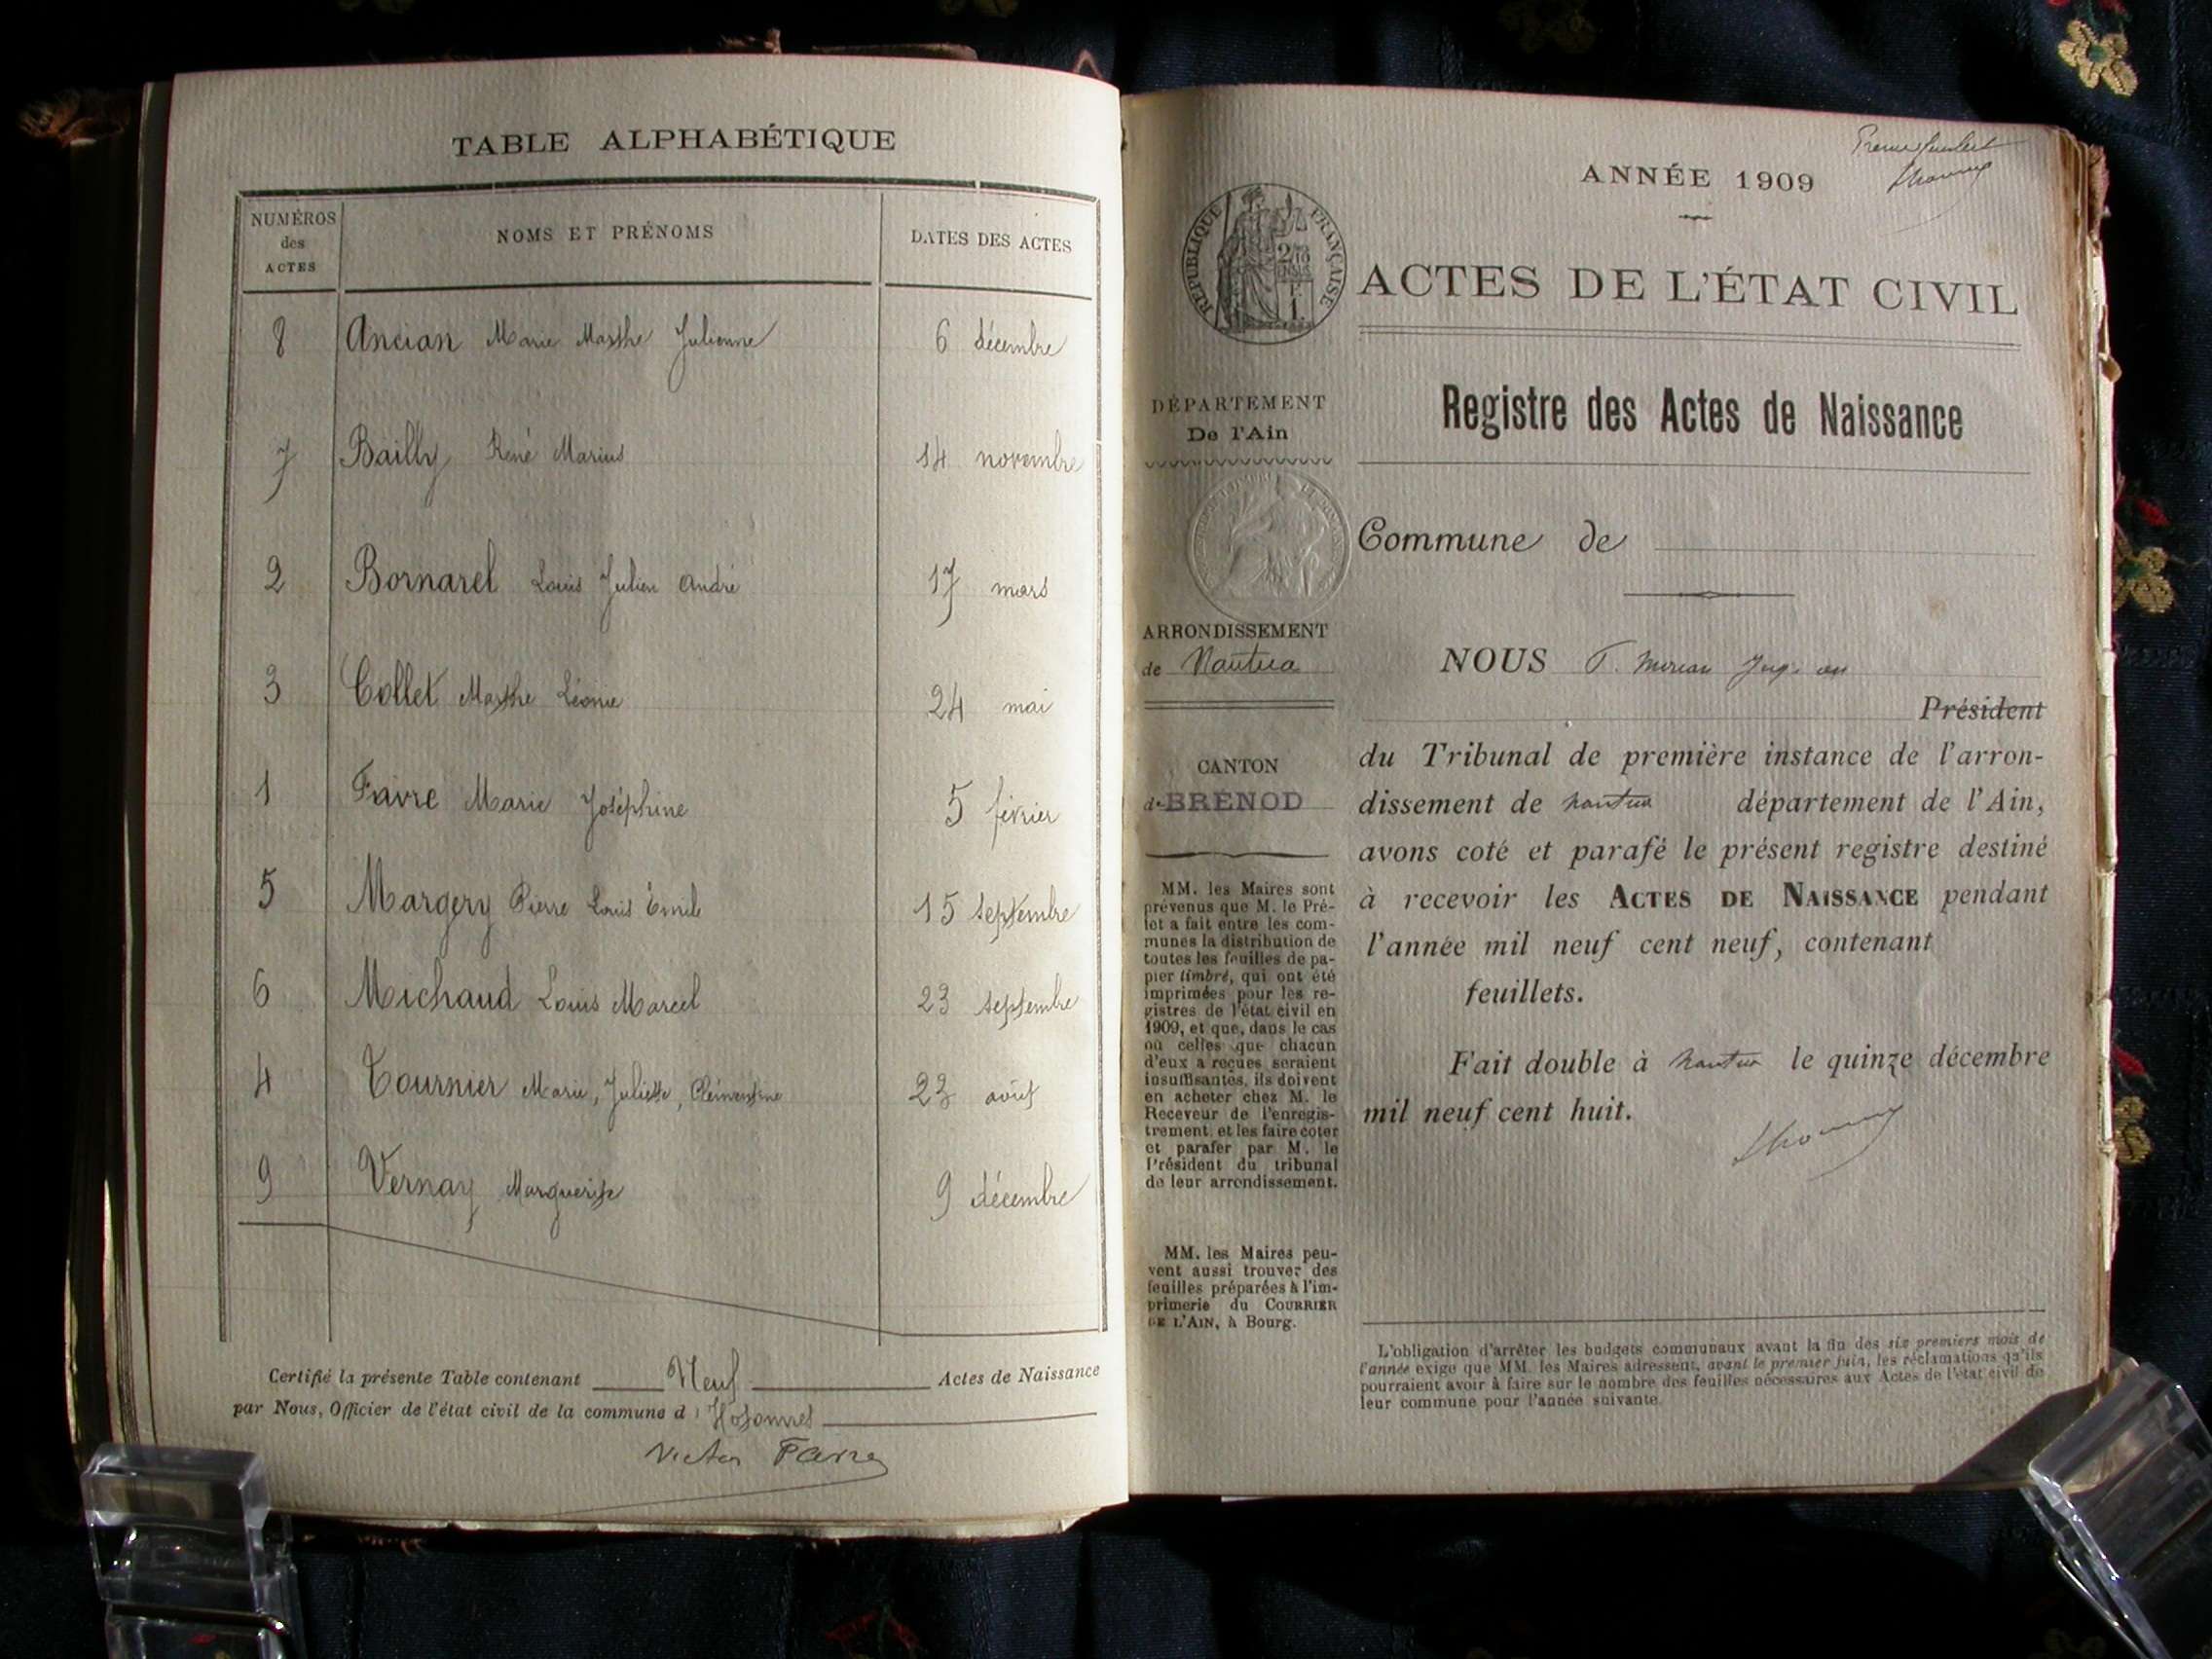 TABLE ALPHABÉTIQUE
NUMÉROS des ACTES
NOMS ET PRÉNOMS
DATES DES ACTES
8 Ancian Marie Marthe Julienne 6 décembre
7 Bailly René Marius 14 novembre
2 Bornarel Louis Julien André 17 mars
3 Collet Marthe Léonie 24 mai
1 Favre Marie Joséphine 5 février
5 Margery Pierre Louis Émile 15 septembre
6 Michaud Louis Marcel 23 septembre
4 Tournier Marie, Juliette, Clémentine 23 août
9 Vernay Marguerite 9 décembre
Certifié la présente Table contenant Neuf Actes de Naissance
par Nous, Officier de l'état civil de la commune d
Victor
ANNÉE 1909
RÉPUBLIQUE FRANÇAISE
ACTES DE L'ÉTAT CIVIL
DÉPARTEMENT
De l'Ain
Registre des Actes de Naissance
Commune de
ARRONDISSEMENT
de Nantua
CANTON
de BRÉNOD
MM. les Maires sont
prévenus que M. le Pré-
fet a fait entre les com-
munes la distribution de
toutes les feuilles de pa-
pier timbré, qui ont été
imprimées pour les re-
gistres de l'état civil en
1909, et que, dans le cas
où celles que chacun
d'eux a reçues seraient
insuffisantes, ils doivent
en acheter chez M. le
Receveur de l'enregis-
trement, et les faire coter
et parafer par M. le
Président du tribunal
de leur arrondissement.
MM. les Maires peu-
vent aussi trouver des
feuilles préparées à l'im-
primerie du COURRIER
DE L'AIN, à Bourg.
NOUS
Président
du Tribunal de première instance de l'arron-
dissement de Nantua département de l'Ain,
avons coté et parafé le présent registre destiné
à recevoir les ACTES DE NAISSANCE pendant
l'année mil neuf cent neuf, contenant
feuillets.
Fait double à Nantua le quinze décembre
mil neuf cent huit.
L'obligation d'arrêter les budgets communaux avant la fin des six premiers mois de
l'année exige que MM. les Maires adressent, avant le premier juin, les réclamations qu'ils
pourraient avoir à faire sur le nombre des feuilles nécessaires aux Actes de l'état civil de
leur commune pour l'année suivante.